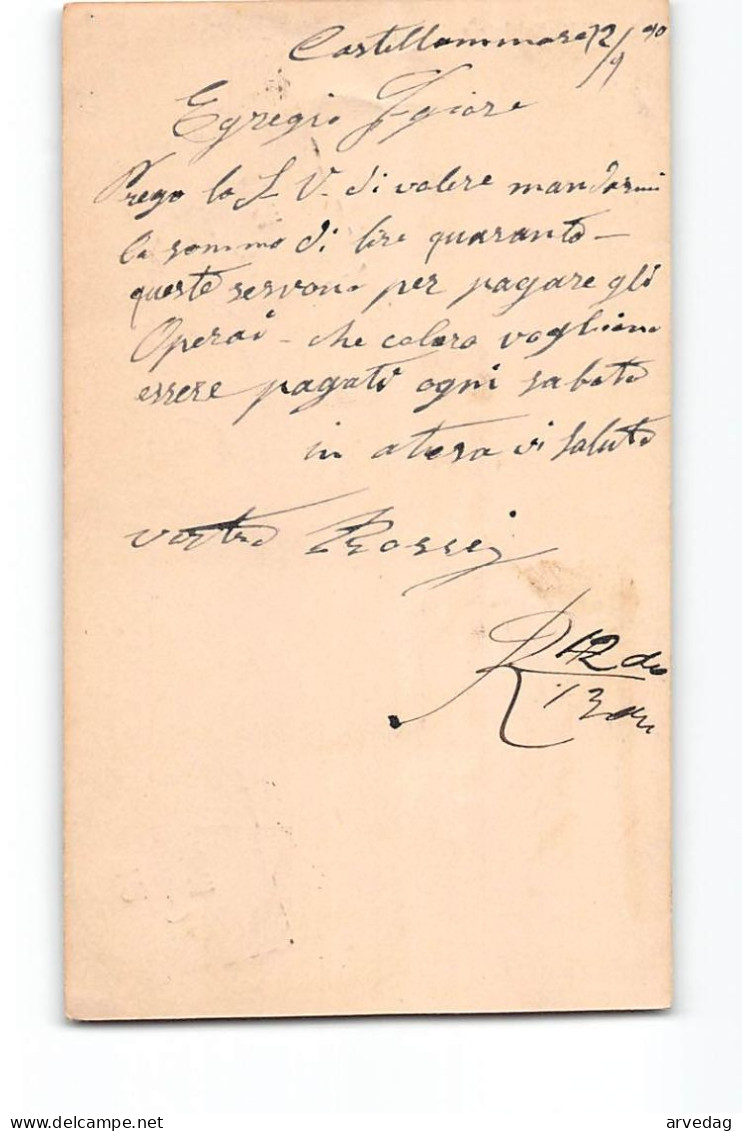 Castellammare 12/9 90
Egregio Sgiore
Prego la S V. di volere mandarmi
la somma di lire quaranta –
queste servono per pagare gli
Operai – che coloro vogliono
essere pagati ogni sabato
in atesa vi saluto
vostro Rossi
R 12 do
13 do
delcampe.net
arvedag